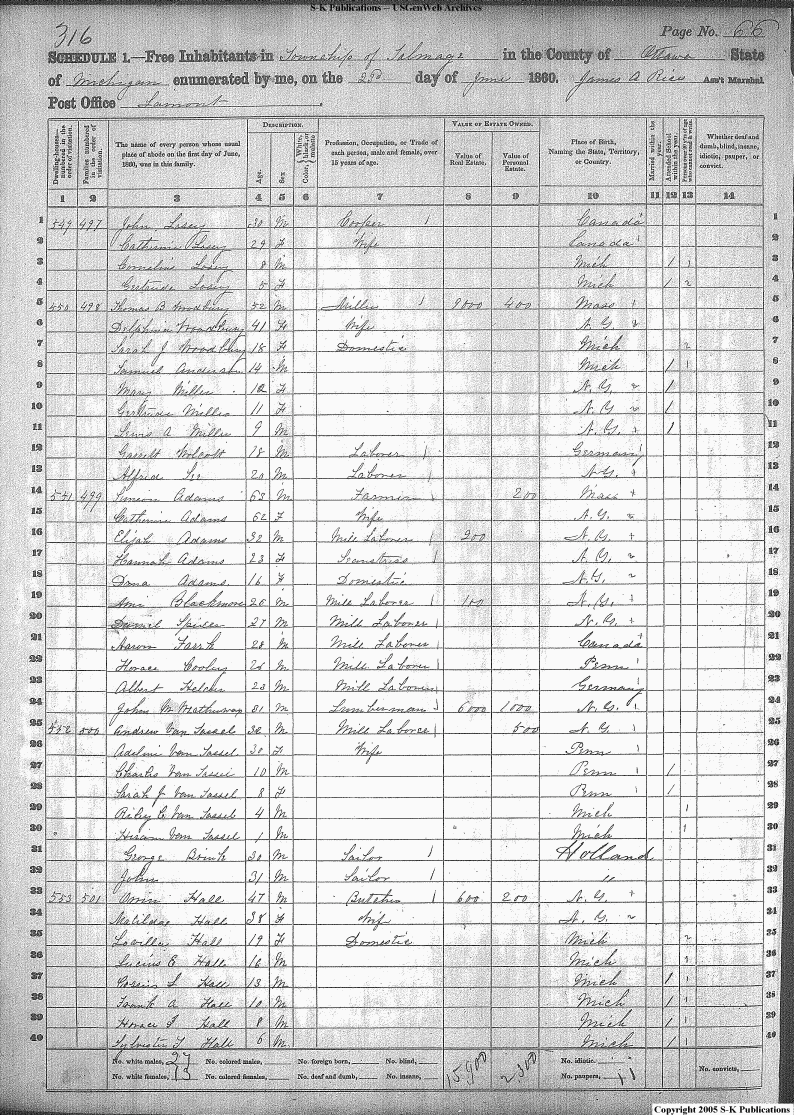 S-K Publications – USGenWeb Archives
316
Page No. 66
SCHEDULE 1.—Free Inhabitants in Township of Talmage in the County of Ottawa State
of Michigan enumerated by me, on the 23d day of June 1860. James A Rice Ass't Marshal
Post Office Lamont
Dwelling-houses—numbered in the order of visitation.
Families numbered in the order of visitation.
The name of every person whose usual place of abode on the first day of June, 1860, was in this family.
DESCRIPTION.
Age.
Sex
Color, White, black, or mulatto
Profession, Occupation, or Trade of each person, male and female, over 15 years of age.
VALUE OF ESTATE OWNED.
Value of Real Estate.
Value of Personal Estate.
Place of Birth, Naming the State, Territory, or Country.
Married within the year.
Attended School within the year.
Whether deaf and dumb, blind, insane, idiotic, pauper, or convict.
1 2 3 4 5 6 7 8 9 10 11 12 13 14
1 549 497 John Losey 30 M Cooper 1 Canada 1
2 Catherine Losey 29 F Wife Canada 2
3 Cornelius Losey 8 M Mich 1 3
4 Gertrude Losey 5 F Mich 1 4
5 550 498 Thomas B Woodbury 52 M Miller 1 9000 400 Mass 5
6 Delphine Woodbury 41 F Wife N.Y. 6
7 Sarah J Woodbury 18 F Domestic Mich 7
8 Samuel Anderson 14 M Mich 1 8
9 Mary Miller 12 F N.Y. 1 9
10 Gertrude Miller 11 F N.Y. 1 10
11 Lewis A Miller 9 M N.Y. 1 11
12 Garrett Wolcott 18 M Laborer Germany 12
13 Alfred 20 M Laborer N.Y. 13
14 551 499 Simeon Adams 63 M Farmer 200 Mass 14
15 Catherine Adams 62 F Wife N.Y. 15
16 Elijah Adams 32 M Mill Laborer 200 N.Y. 16
17 Hannah Adams 23 F Seamstress N.Y. 17
18 Dana Adams 16 F Domestic N.Y. 18
19 Blackmore 26 M Mill Laborer 100 N.Y. 19
20 Daniel Spicer 27 M Mill Laborer N.Y. 20
21 Aaron 28 M Mill Laborer Canada 21
22 Horace Cooley 26 M Mill Laborer Penn 22
23 Albert 23 M Mill Laborer Germany 23
24 John M 31 M Lumberman 6000 1000 N.Y. 24
25 552 500 Andrew Van Tassel 32 M Mill Laborer 500 N.Y. 25
26 Adeline Van Tassel 28 F Wife Penn 26
27 Charles Van Tassel 10 M Penn 1 27
28 Sarah J Van Tassel 8 F Penn 1 28
29 Riley C Van Tassel 4 M Mich 29
30 Hiram Van Tassel 1 M Mich 30
31 George Brink 30 M Sailor Holland 31
32 John 31 M Sailor " 32
33 553 501 Orrin Hall 47 M Butcher 600 200 N.Y. 33
34 Matilda Hall 38 F Wife N.Y. 34
35 Hall 19 F Domestic Mich 35
36 Lucius E Hall 16 M Mich 36
37 Hall 13 M Mich 1 37
38 Frank A Hall 10 M Mich 1 38
39 Horace Hall 8 M Mich 1 39
40 Sylvester Hall 6 M Mich 1 40
No. white males, 27 No. colored males, No. foreign born, No. blind, 15,900 2300 No. idiotic.
No. white females, 13 No. colored females, No. deaf and dumb, No. insane, No. paupers, 11 No. convicts,
Copyright 2005 S-K Publications